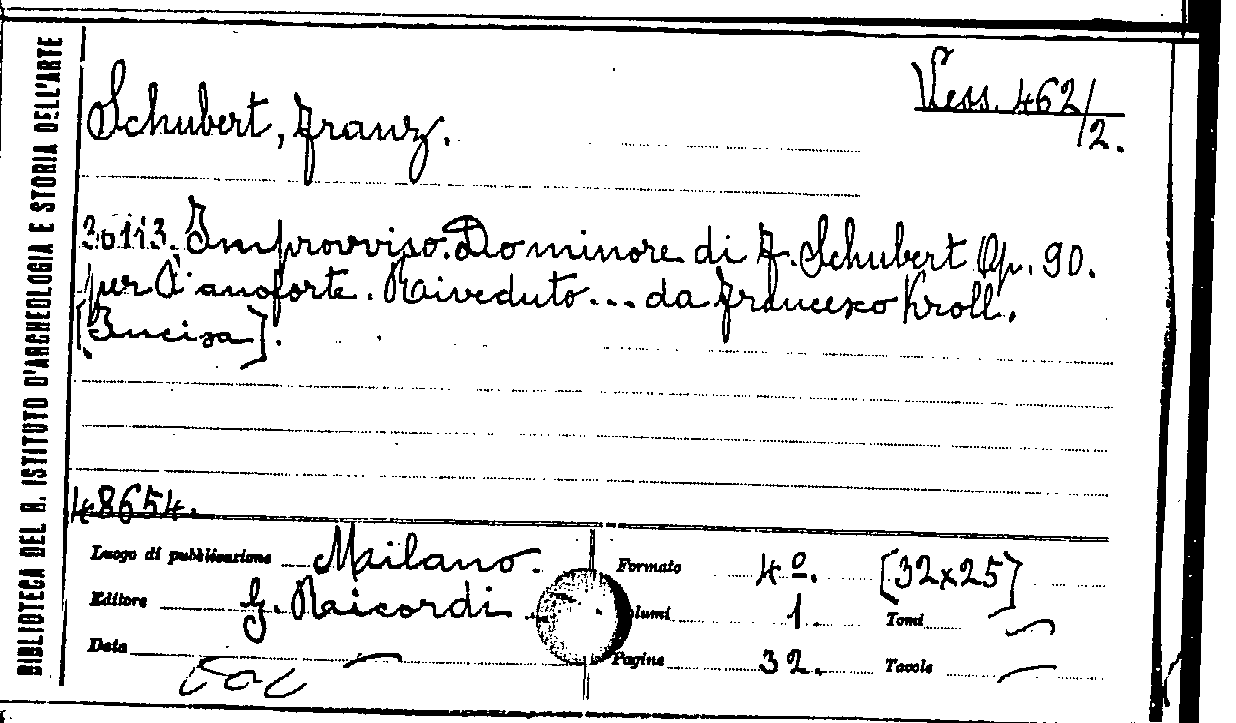 BIBLIOTECA DEL R. ISTITUTO D'ARCHEOLOGIA E STORIA DELL'ARTE
Vess. 462/2.
Schubert, Franz.
30113. Improvviso. Do minore di F. Schubert Op. 90.
per Pianoforte. Riveduto... da Francesco Kroll.
[Incisa].
48654.
Luogo di pubblicazione Milano. Formato 4º. [32x25]
Editore G. Ricordi Volumi 1. Tomi —
Data — Pagine 32. Tavole —